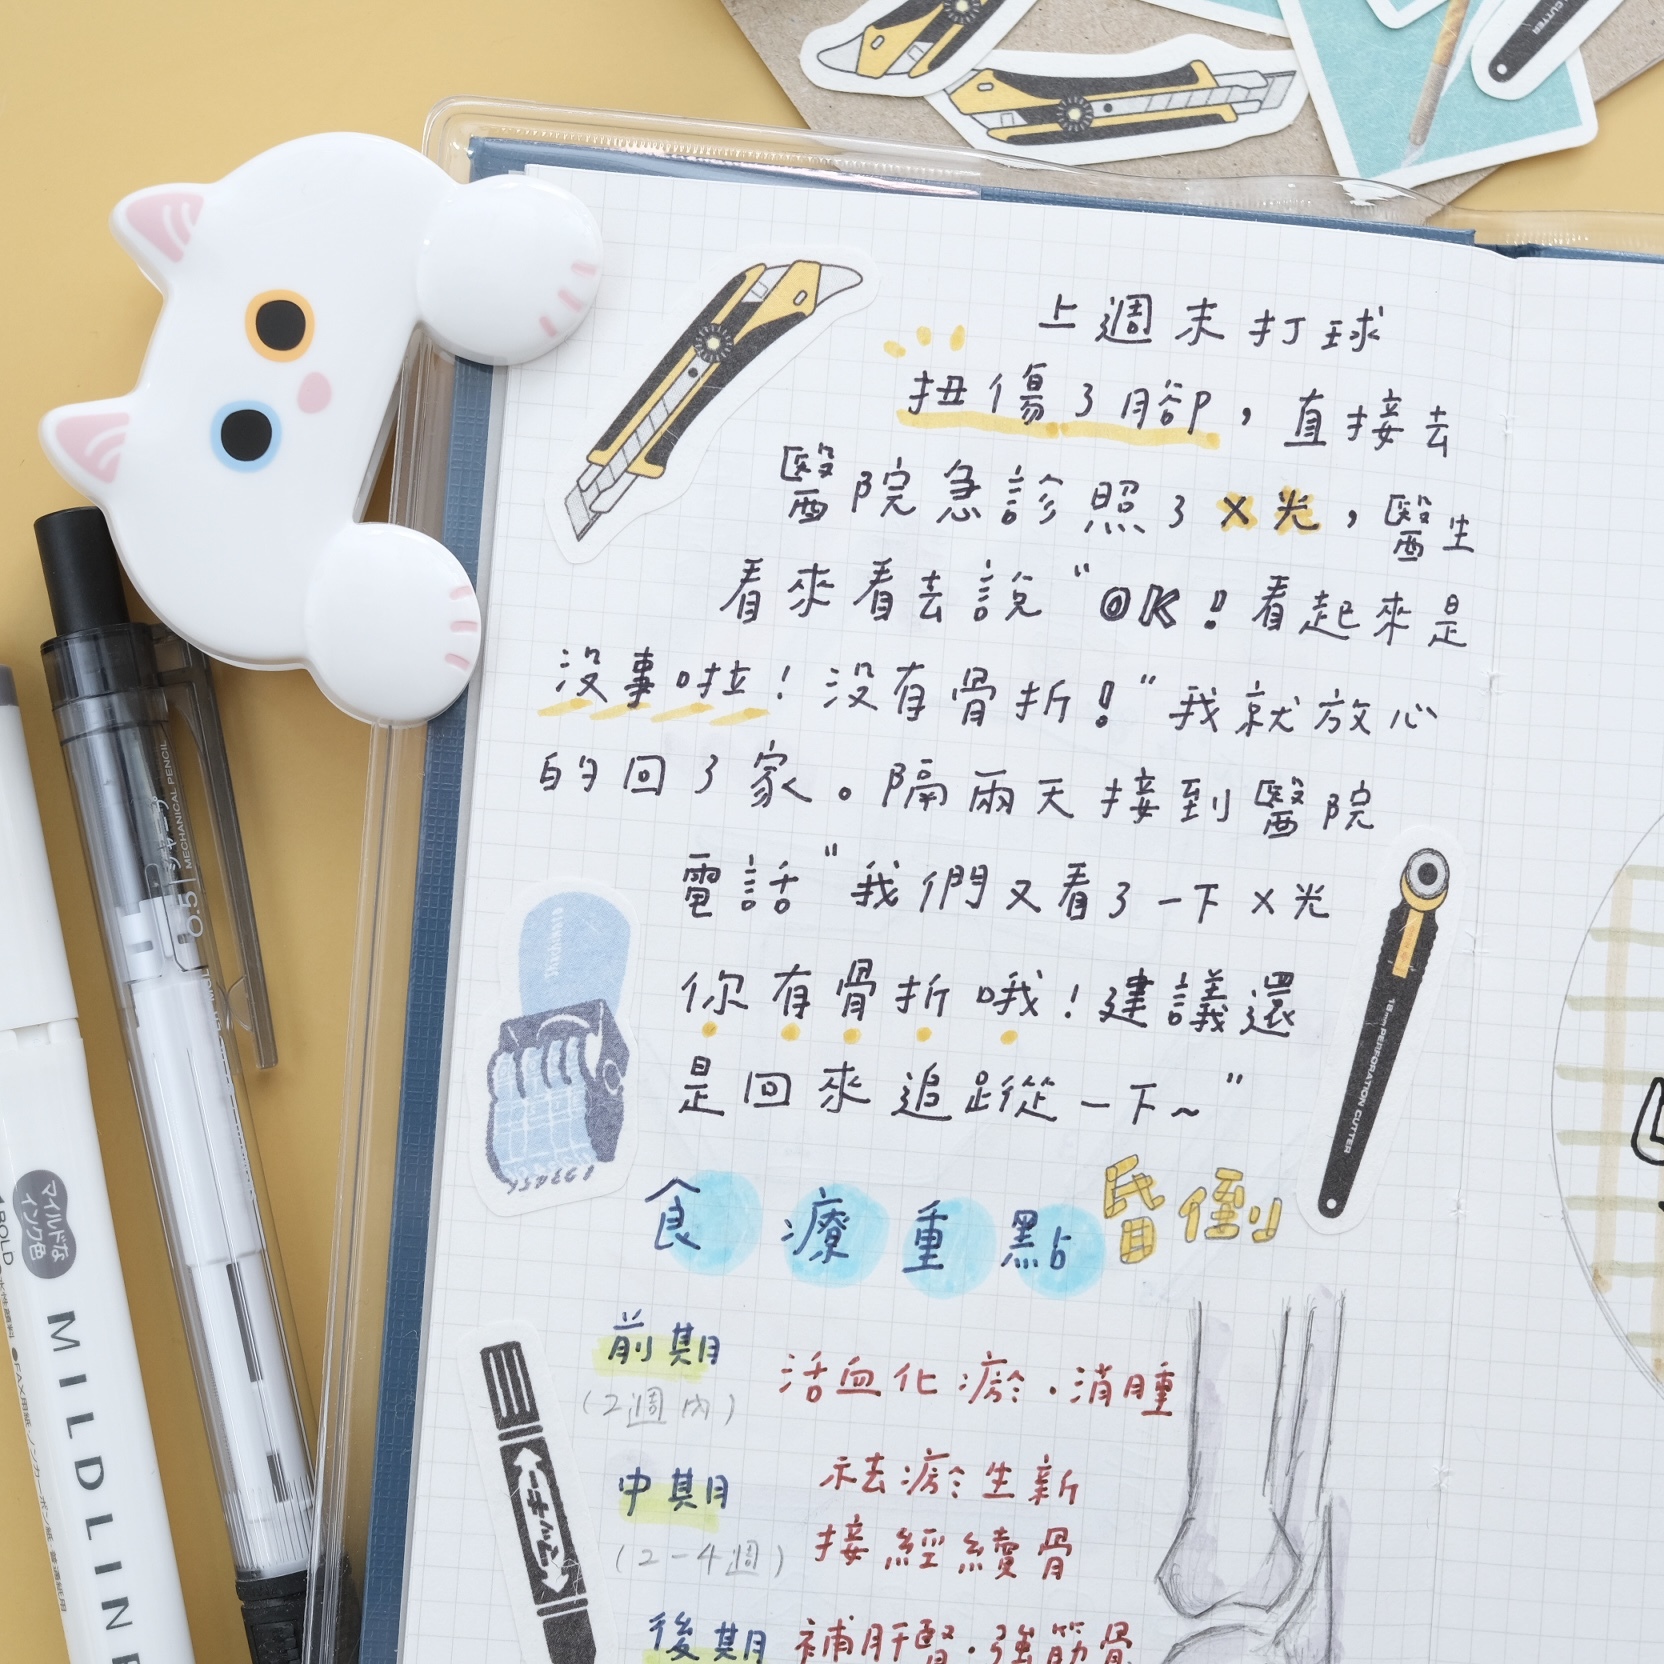 上週末打球
扭傷了腳，直接去
醫院急診照了X光，醫生
看來看去說"OK！看起來是
沒事啦！沒有骨折！"我就放心
的回了家。隔兩天接到醫院
電話"我們又看了一下X光
你有骨折哦！建議還
是回來追蹤一下~"
昏倒
食療重點
前期 活血化瘀·消腫
(2週內)
中期 祛瘀生新
(2-4週) 接經續骨
後期 補肝腎·強筋骨
18mm PERFORATION CUTTER
CUTTER
マッキー
0.5 シャープ
MECHANICAL PENCIL
マイルドな
インク色
MILDLINE